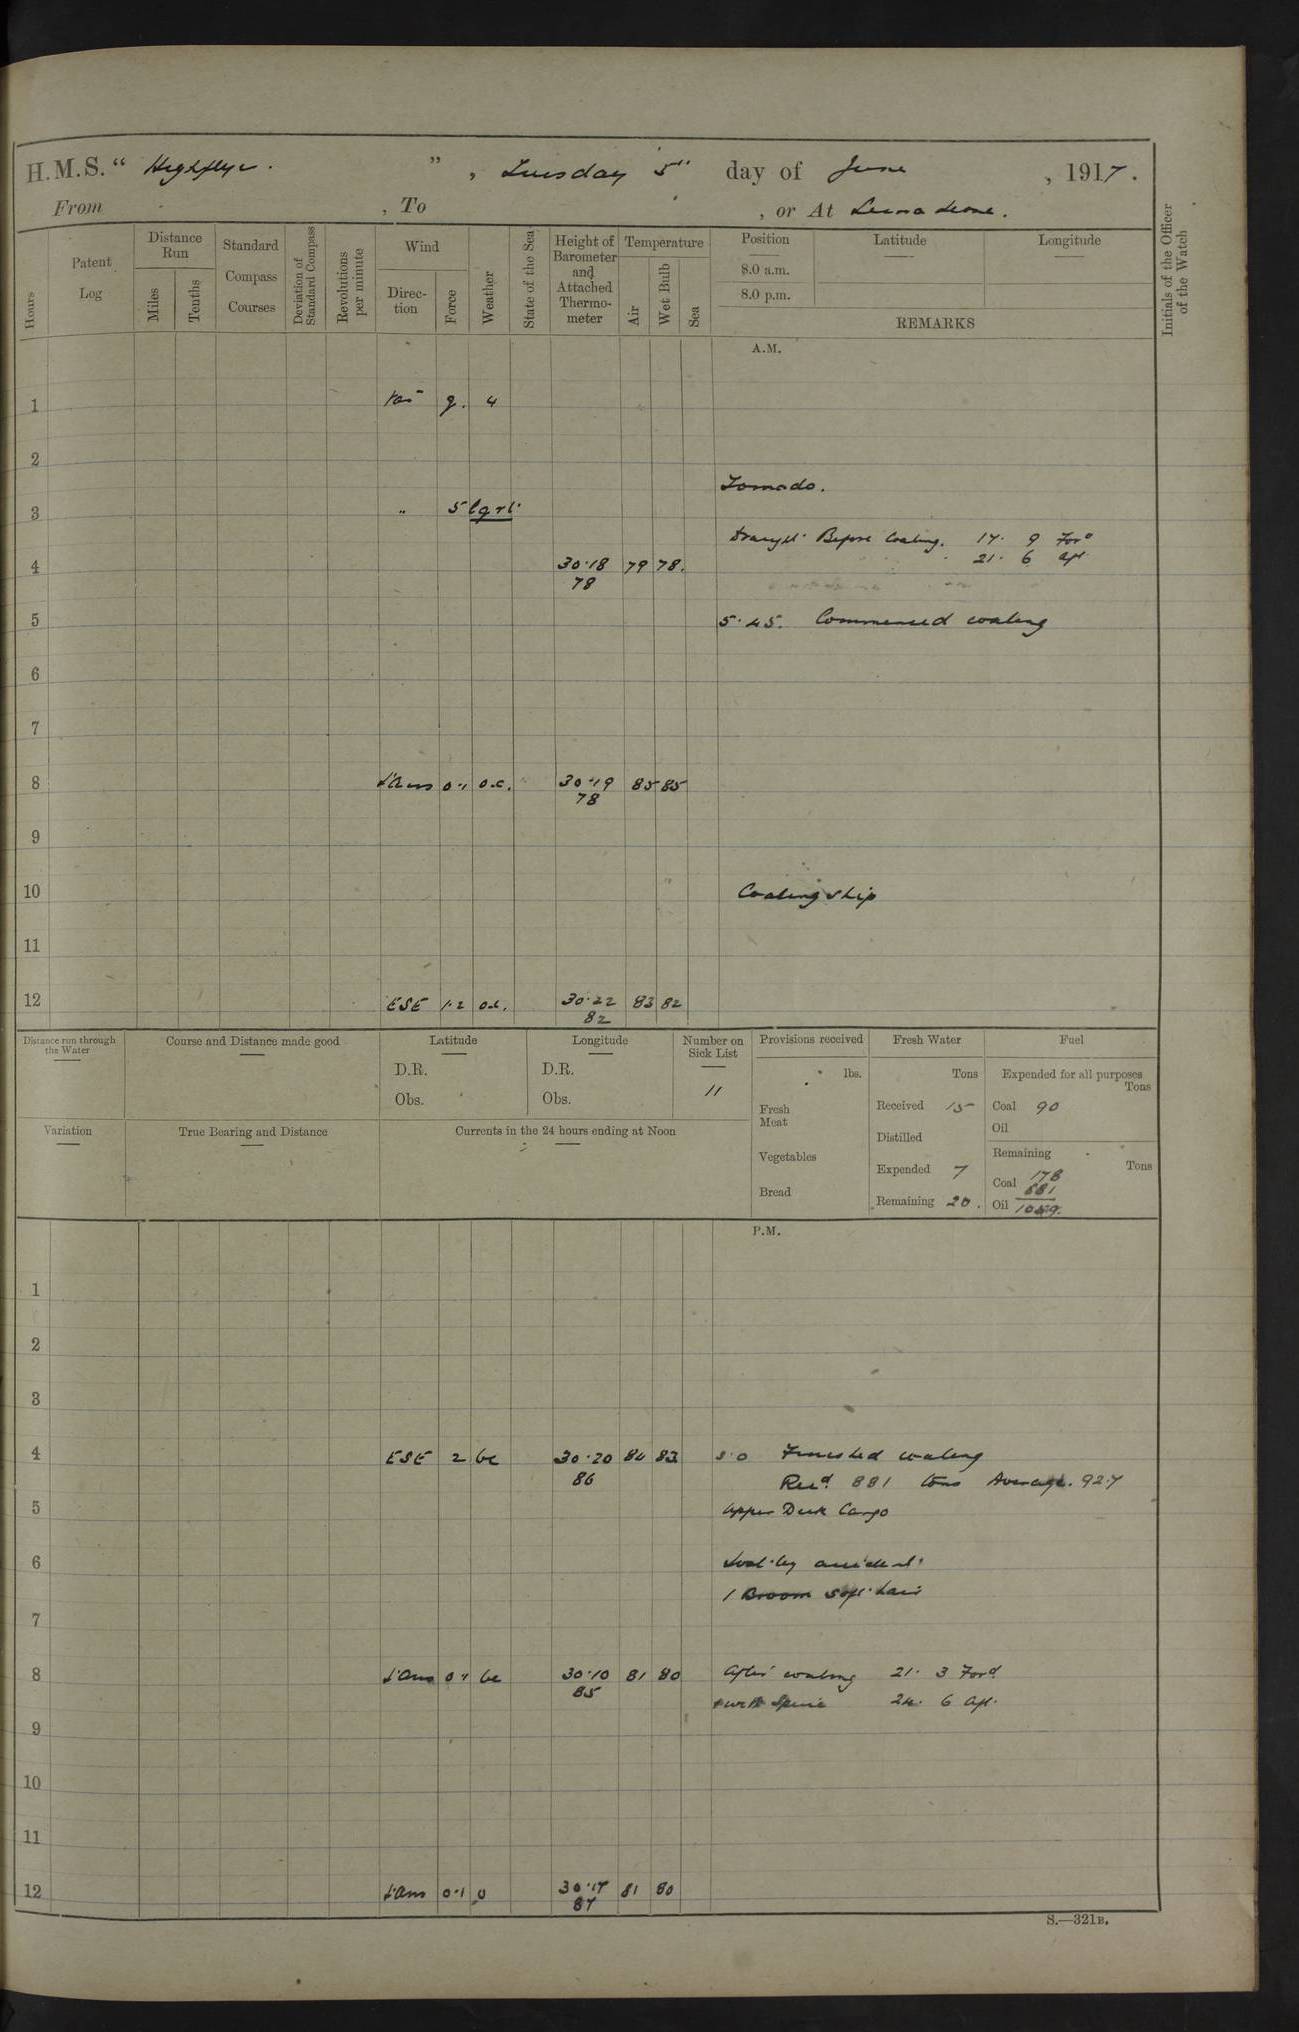 H.M.S. "Highflyer.", Tuesday 5th day of June, 1917.
From , To , or At Sierra Leone.
Hours
Patent Log
Distance Run
Miles
Tenths
Standard Compass Courses
Deviation of Standard Compass
Revolutions per minute
Wind
Direction
Force
Weather
State of the Sea
Height of Barometer and Attached Thermometer
Temperature
Air
Wet Bulb
Sea
Position
Latitude
Longitude
8.0 a.m.
8.0 p.m.
REMARKS
Initials of the Officer of the Watch
A.M.
1 4
2
Tornado.
3 " 5 lqrt
Draught Before Coaling. 17. 9 Ford
4 30.18 79 78. 21. 6 Aft
78
5 5.45. Commenced coaling
6
7
8 L'Airs 0.1 o.c. 30.19 85 85
78
9
10 Coaling ship
11
12 ESE 1.2 o.c. 30.22 83 82
82
Distance run through the Water
Course and Distance made good
Latitude
D.R.
Obs.
Longitude
D.R.
Obs.
Number on Sick List
11
Provisions received
lbs.
Fresh Meat
Vegetables
Bread
Fresh Water
Tons
Received 15
Distilled
Expended 7
Remaining 20.
Fuel
Expended for all purposes
Tons
Coal 90
Oil
Remaining
Tons
Coal 178
881
Oil
Variation
True Bearing and Distance
Currents in the 24 hours ending at Noon
P.M.
1
2
3
4 ESE 2 bc 30.20 84 83 Finished coaling
86 Recd. 881 tons Average. 92.7
5 Upper Deck Cargo
6 Lost by accident
1 Broom soft hair
7
8 L'Airs 0.1 bc 30.10 81 80 After coaling 21. 3 Ford
85 24. 6 Aft.
9
10
11
12 L'Airs 0.1 o 30.17 81 80
87
S.—321B.